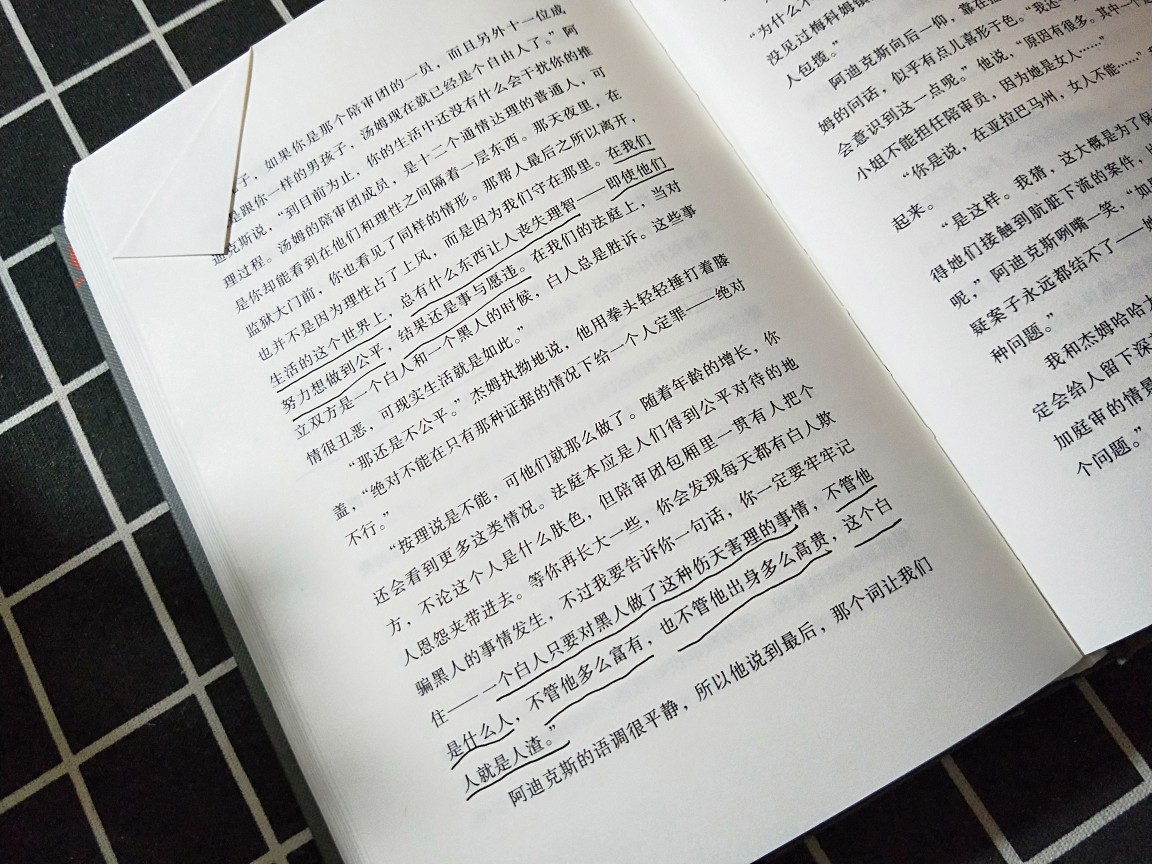 子，如果你是那个陪审团的一员，而且另外十一位成
是跟你一样的男孩子，汤姆现在就已经是个自由人了。”阿
迪克斯说，“到目前为止，你的生活中还没有什么会干扰你的推
理过程。汤姆的陪审团成员，是十二个通情达理的普通人，可
是你却能看到在他们和理性之间隔着一层东西。那天夜里，在
监狱大门前，你也看见了同样的情形。那帮人最后之所以离开，
也并不是因为理性占了上风，而是因为我们守在那里。在我们
生活的这个世界上，总有什么东西让人丧失理智——即使他们
努力想做到公平，结果还是事与愿违。在我们的法庭上，当对
立双方是一个白人和一个黑人的时候，白人总是胜诉。这些事
情很丑恶，可现实生活就是如此。”
“那还是不公平。”杰姆执拗地说，他用拳头轻轻捶打着膝
盖，“绝对不能在只有那种证据的情况下给一个人定罪——绝对
不行。”
“按理说是不能，可他们就那么做了。随着年龄的增长，你
还会看到更多这类情况。法庭本应是人们得到公平对待的地
方，不论这个人是什么肤色，但陪审团包厢里一贯有人把个
人恩怨夹带进去。等你再长大一些，你会发现每天都有白人欺
骗黑人的事情发生，不过我要告诉你一句话，你一定要牢牢记
住——一个白人只要对黑人做了这种伤天害理的事情，不管他
是什么人，不管他多么富有，也不管他出身多么高贵，这个白
人就是人渣。”
阿迪克斯的语调很平静，所以他说到最后，那个词让我们
“为什么不
没见过梅科姆镇
人包揽。”
阿迪克斯向后一仰，靠在
姆的问话，似乎有点儿喜形于色。“我还
会意识到这一点呢。”他说，“原因有很多。其中一个
小姐不能担任陪审员，因为她是女人……”
“你是说，在亚拉巴马州，女人不能……”
起来。
“是这样。我猜，这大概是为了保
得她们接触到肮脏下流的案件，
呢，”阿迪克斯咧嘴一笑，“如
疑案子永远都结不了——她
种问题。”
我和杰姆哈哈
定会给人留下深
加庭审的情景
个问题。”